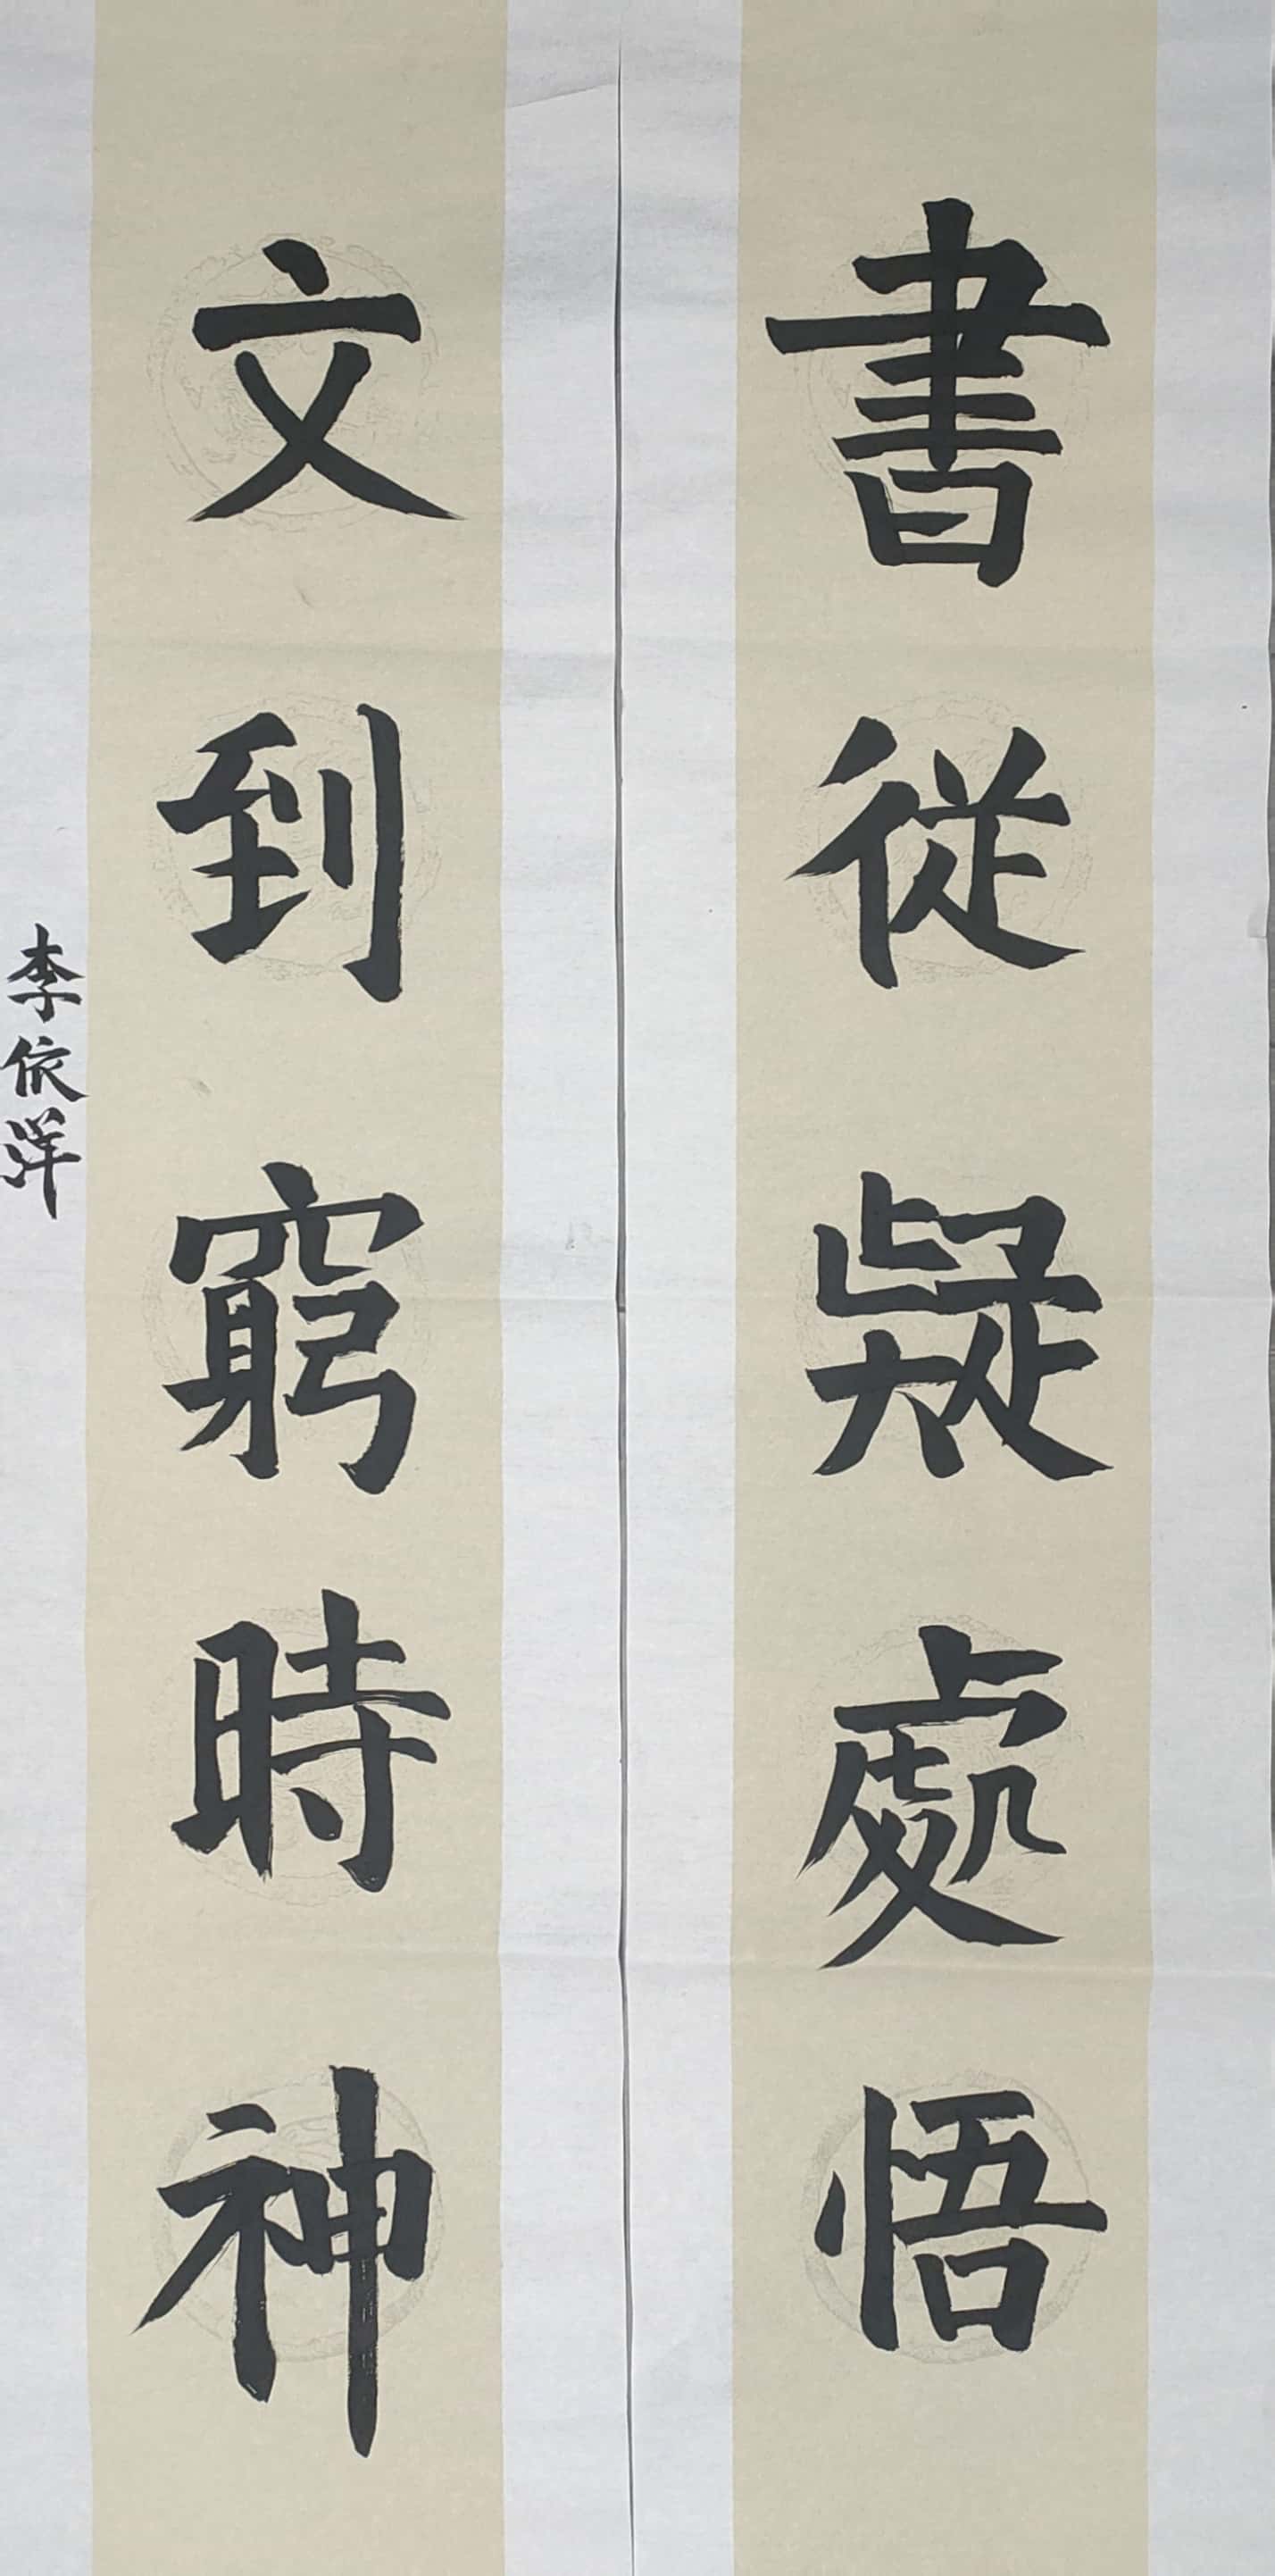 書從疑處悟
文到窮時神
李依洋